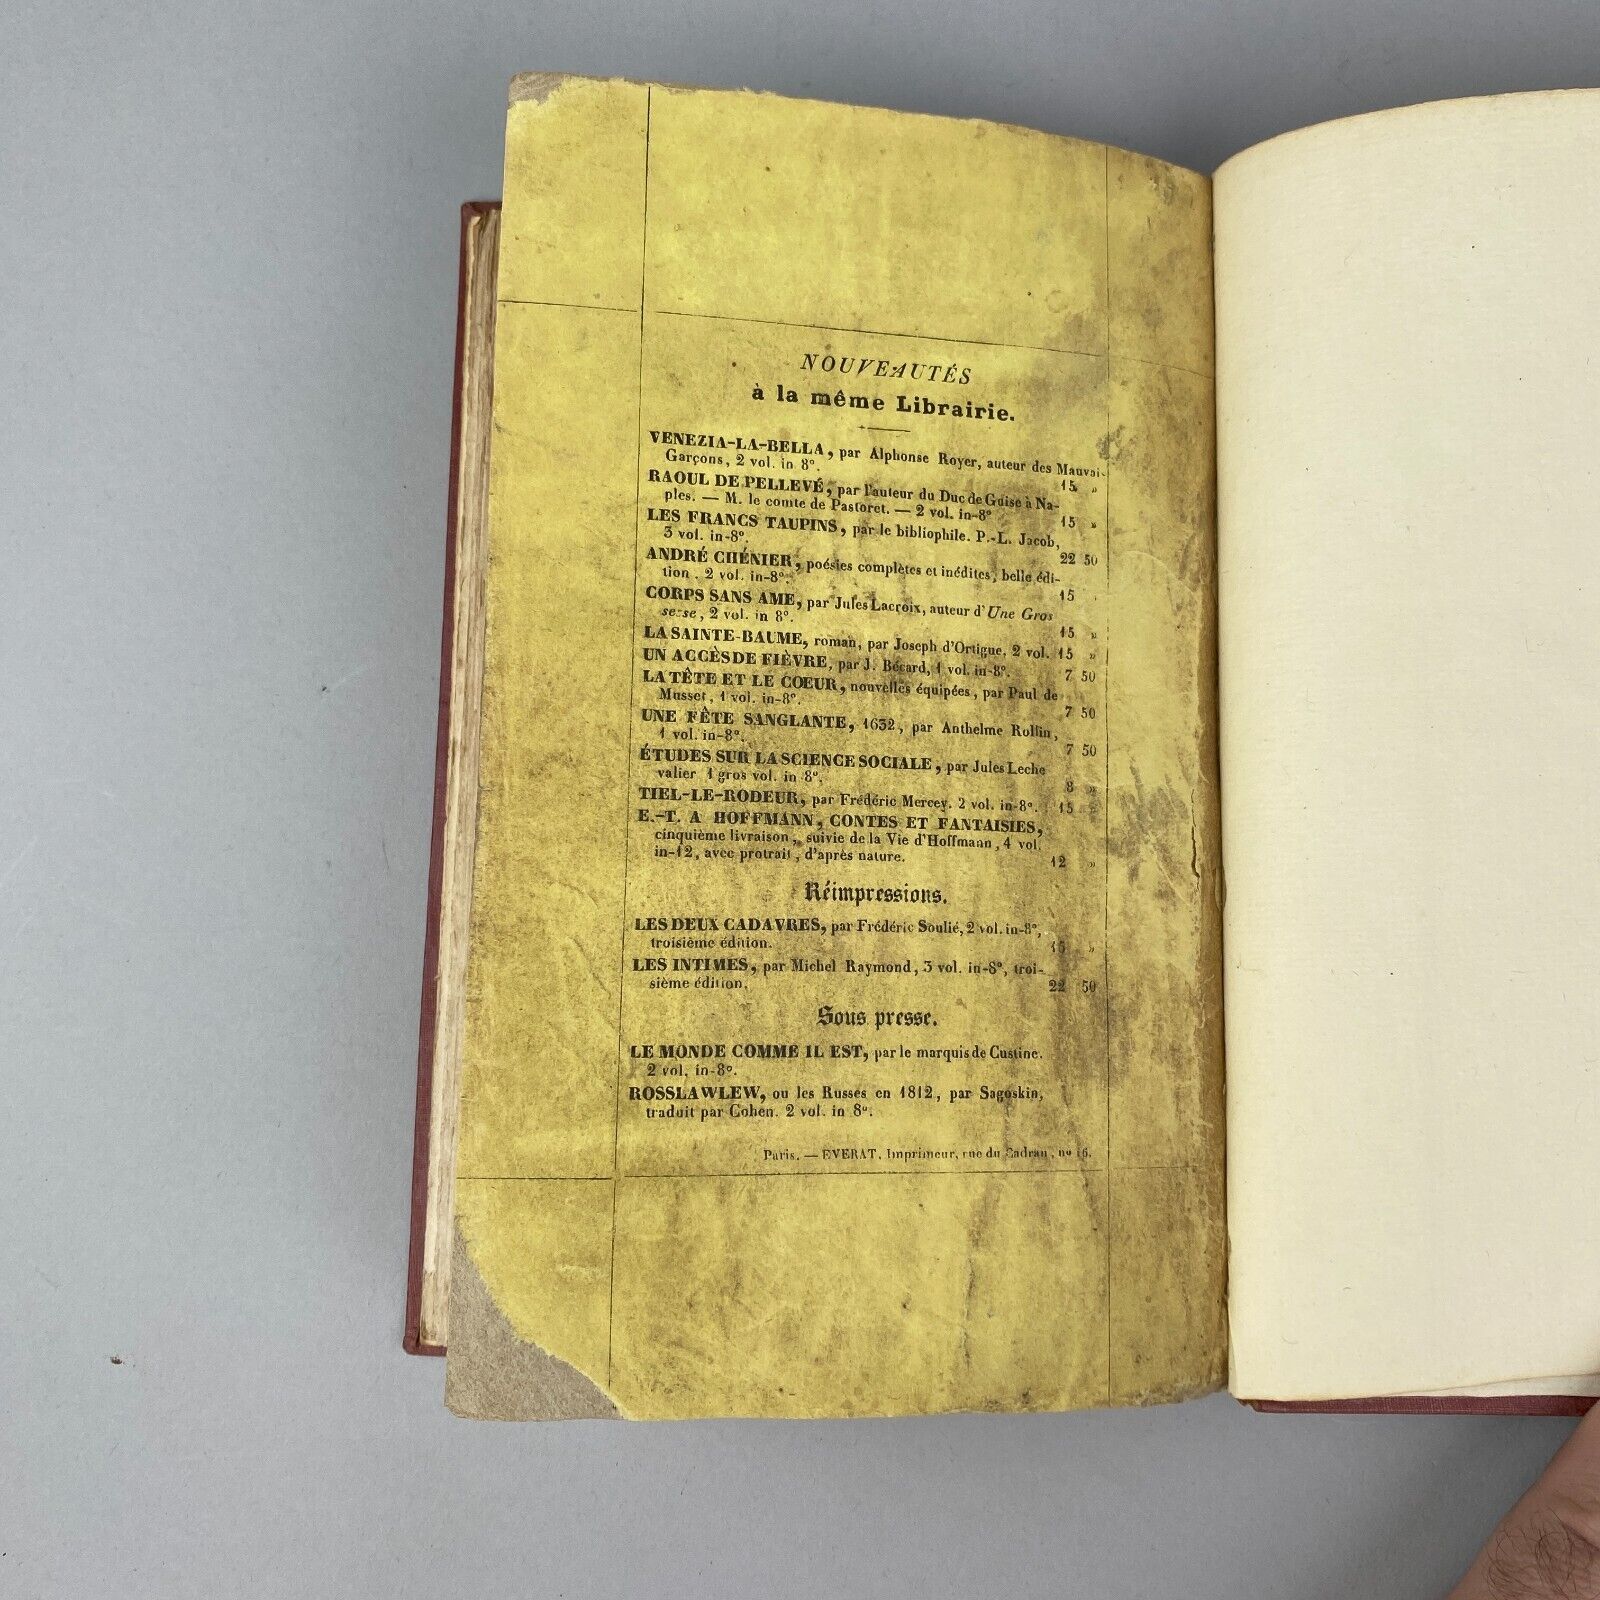 NOUVEAUTÉS
à la même Librairie.
VENEZIA-LA-BELLA, par Alphonse Royer, auteur des Mauvai-
Garçons, 2 vol. in 8°. 15 »
RAOUL DE PELLEVÉ, par l'auteur du Duc de Guise à Na-
ples. — M. le comte de Pastoret. — 2 vol. in-8° 15 »
LES FRANCS TAUPINS, par le bibliophile. P.-L. Jacob,
3 vol. in-8°. 22 50
ANDRÉ CHÉNIER, poésies complètes et inédites, belle édi-
tion. 2 vol. in-8°. 15
CORPS SANS AME, par Jules Lacroix, auteur d'Une Gros
se-se, 2 vol. in 8°. 15 »
LA SAINTE-BAUME, roman, par Joseph d'Ortigue, 2 vol. 15 »
UN ACCÈS DE FIÈVRE, par J. Bécard, 1 vol. in-8°. 7 50
LA TÊTE ET LE COEUR, nouvelles équipées, par Paul de
Musset, 1 vol. in-8°. 7 50
UNE FÊTE SANGLANTE, 1632, par Anthelme Rollin,
1 vol. in-8°. 7 50
ÉTUDES SUR LA SCIENCE SOCIALE, par Jules Leche
valier 1 gros vol. in 8°. 8 »
TIEL-LE-RODEUR, par Frédéric Mercey. 2 vol. in-8°. 15 »
E.-T. A HOFFMANN, CONTES ET FANTAISIES,
cinquième livraison, suivie de la Vie d'Hoffmann, 4 vol.
in-12, avec protrait, d'après nature. 12 »
Réimpressions.
LES DEUX CADAVRES, par Frédéric Soulié, 2 vol. in-8°,
troisième édition. 15 »
LES INTIMES, par Michel Raymond, 3 vol. in-8°, troi-
sième édition. 22 50
Sous presse.
LE MONDE COMME IL EST, par le marquis de Custine.
2 vol. in-8°.
ROSSLAWLEW, ou les Russes en 1812, par Sagoskin,
traduit par Cohen. 2 vol. in 8°.
Paris. — EVERAT, Imprimeur, rue du Cadran, n° 16.